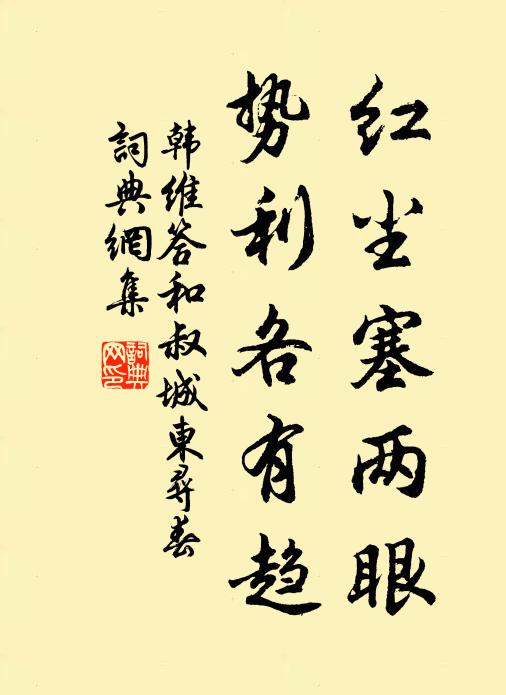 红尘塞两眼
势利各有趋
韩维答和叔城東尋春
詞典網集
詞典網印